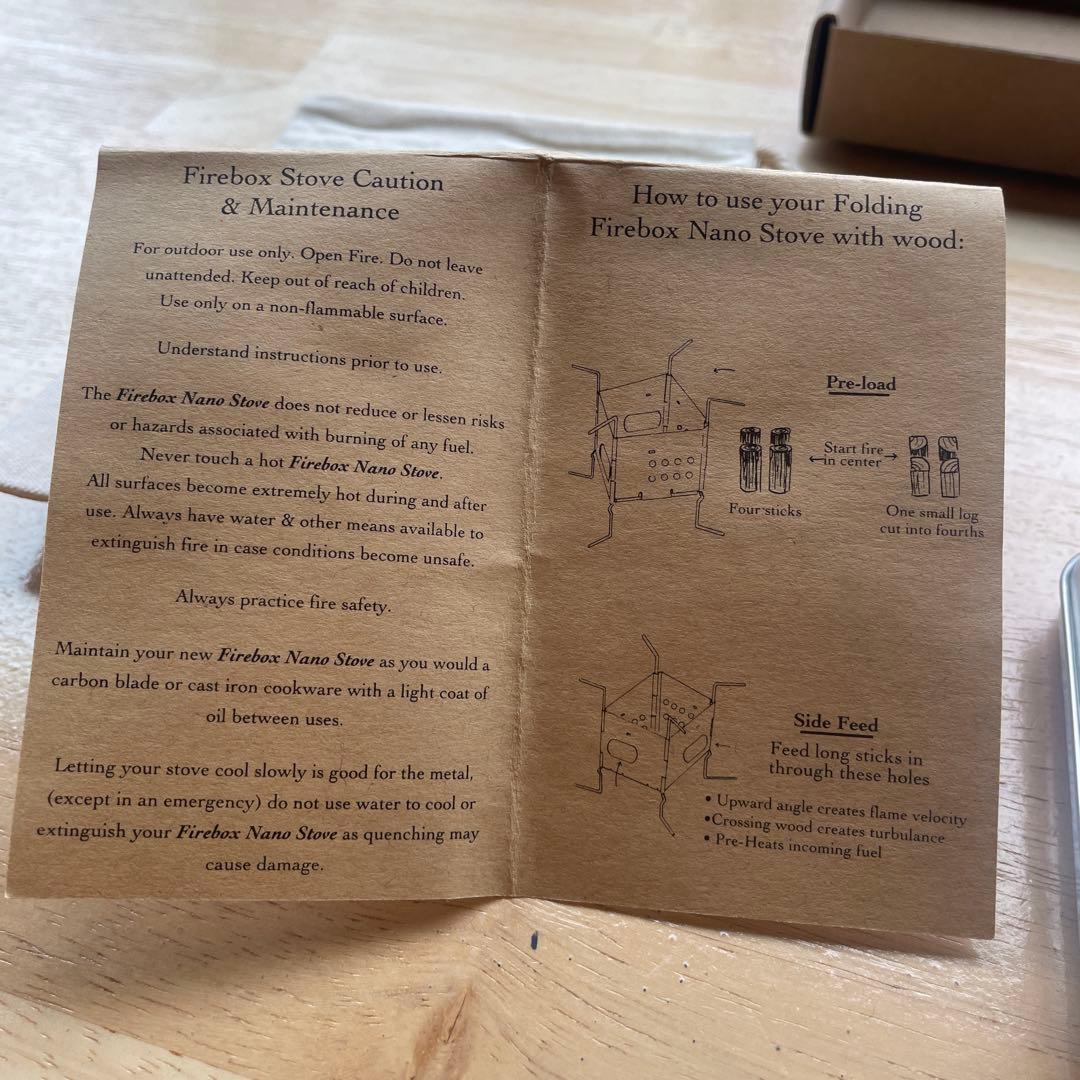 Firebox Stove Caution
& Maintenance
For outdoor use only. Open Fire. Do not leave
unattended. Keep out of reach of children.
Use only on a non-flammable surface.
Understand instructions prior to use.
The Firebox Nano Stove does not reduce or lessen risks
or hazards associated with burning of any fuel.
Never touch a hot Firebox Nano Stove.
All surfaces become extremely hot during and after
use. Always have water & other means available to
extinguish fire in case conditions become unsafe.
Always practice fire safety.
Maintain your new Firebox Nano Stove as you would a
carbon blade or cast iron cookware with a light coat of
oil between uses.
Letting your stove cool slowly is good for the metal,
(except in an emergency) do not use water to cool or
extinguish your Firebox Nano Stove as quenching may
cause damage.
How to use your Folding
Firebox Nano Stove with wood:
Pre-load
Start fire
in center
Four sticks
One small log
cut into fourths
Side Feed
Feed long sticks in
through these holes
• Upward angle creates flame velocity
• Crossing wood creates turbulance
• Pre-Heats incoming fuel